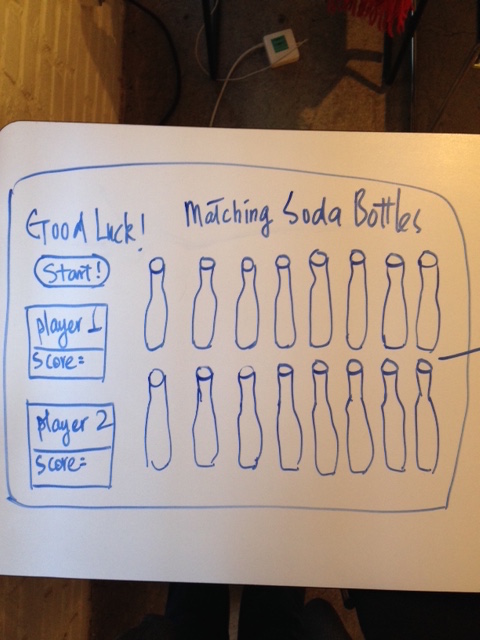 Good Luck!
Matching Soda Bottles
Start!
player 1
Score=
player 2
Score=